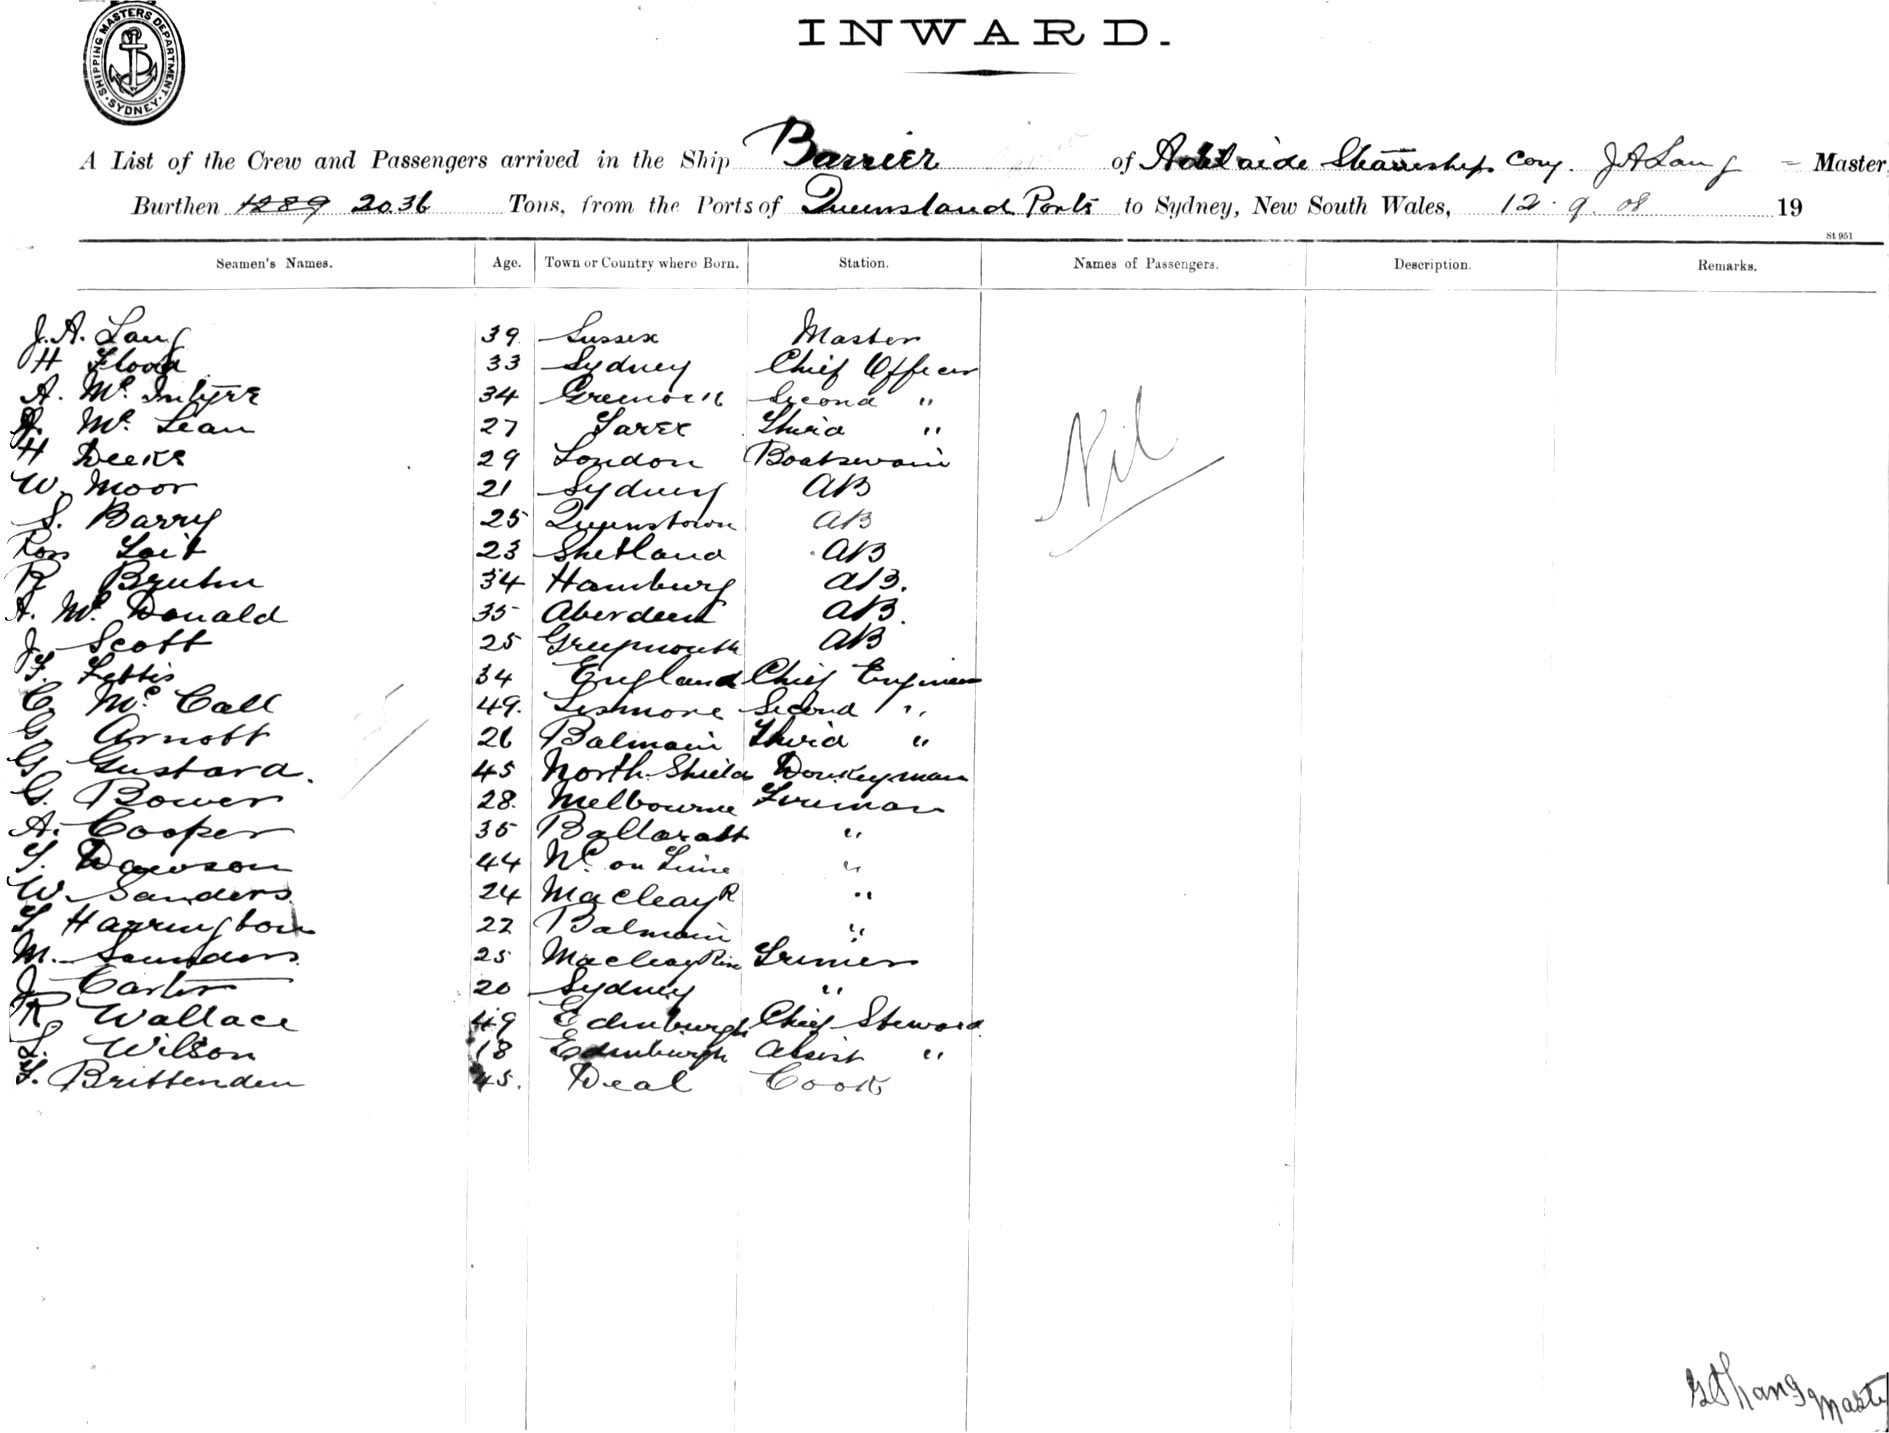 SHIPPING MASTERS DEPARTMENT. SYDNEY.
INWARD.
A List of the Crew and Passengers arrived in the Ship Barrier of Adelaide Steamship Coy. J A Lang Master
Burthen 1289 2036 Tons, from the Ports of Queensland Ports to Sydney, New South Wales, 12.9.08 19
St 951
Seamen's Names. Age. Town or Country where Born. Station. Names of Passengers. Description. Remarks.
J. A. Lang 39 Sussex Master
H Flood 33 Sydney Chief Officer
A. Mc Intyre 34 Greenock Second "
Mc Lean 27 Third "
H Deeks 29 London Boatswain
W. Moor 21 Sydney AB
S. Barry 25 Queenstown AB
Ross Tait 23 Shetland AB
R Bruhn 34 Hamburg AB.
A. Mc Donald 35 Aberdeen AB.
J. Scott 25 Greymouth AB
F. Fettis 34 England Chief Engineer
C. Mc Call 49. Lismore Second "
G. Arnott 26 Balmain Third "
G. Gustard. 45 North Shields Donkeyman
G. Bower 28. Melbourne Fireman
A. Cooper 35 Ballaratt "
T. Dawson 44 Nc. on Tine "
W. Sanders 24 Macleay R "
T Harrington 22 Balmain "
M. Saunders 25 Macleay Riv Trimmer
J Carter 20 Sydney "
R Wallace 49 Edinburgh Chief Steward
S. Wilson 18 Edinburgh Assist "
F. Brittenden 45. Deal Cook
Nil
Lang Master